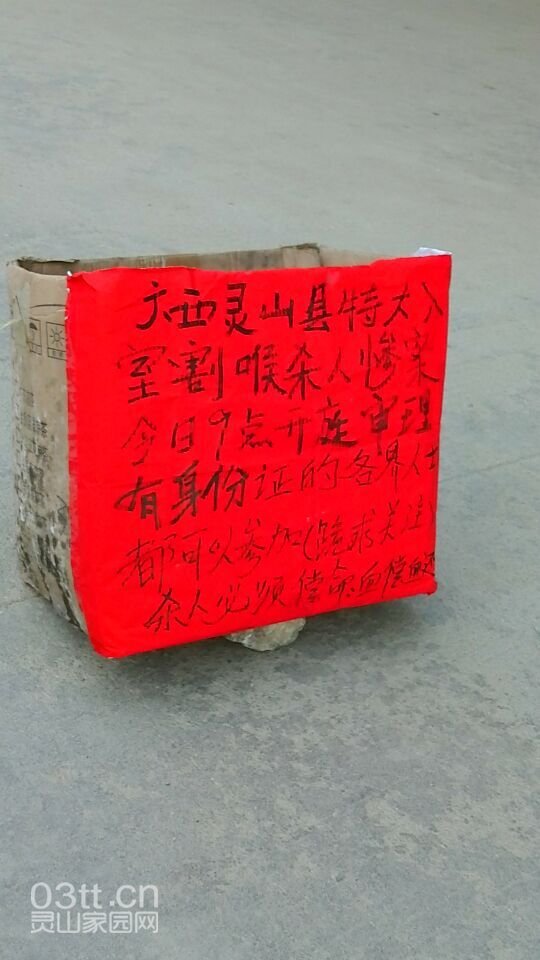 广西灵山县特大入
室割喉杀人惨案
今日9点开庭审理
有身份证的各界人士
都可以参加(跪求关注)
杀人必须偿命血偿血还
03tt.cn
灵山家园网